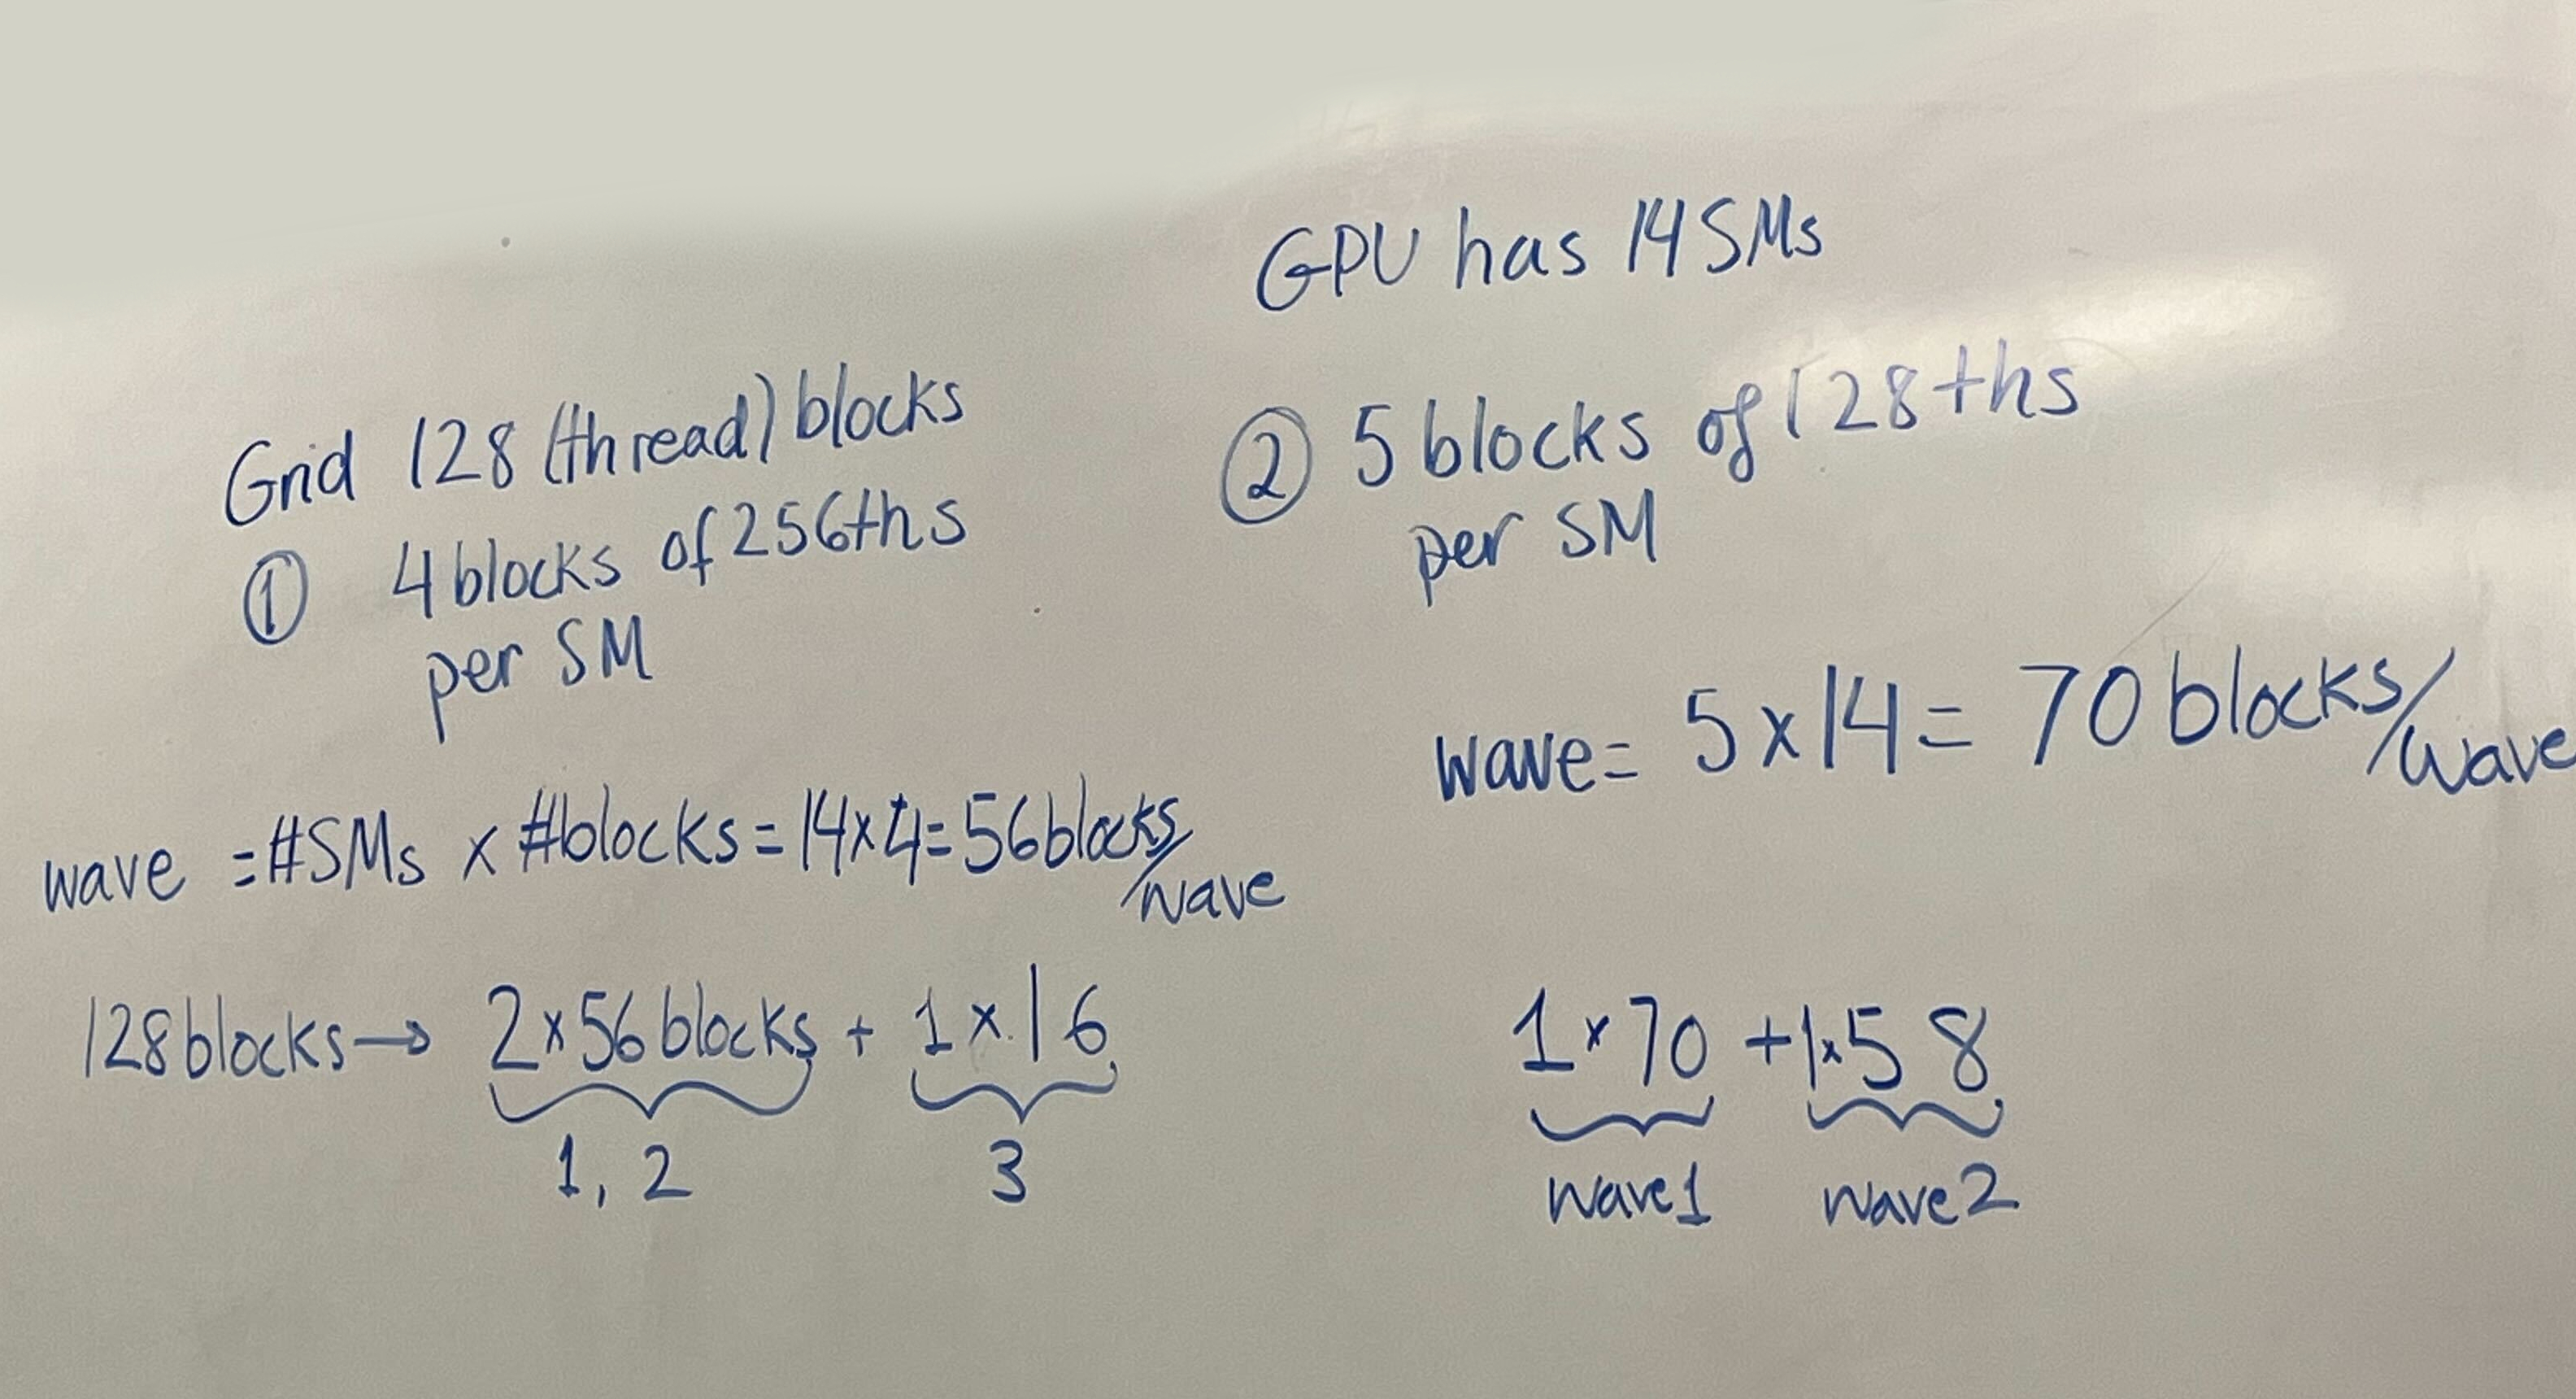 GPU has 14 SMs
Grid 128 (thread) blocks
① 4 blocks of 256 ths
per SM
wave = #SMs x #blocks = 14x4 = 56 blocks/
wave
128 blocks → 2x56 blocks + 1x16
1, 2 3
② 5 blocks of 128 ths
per SM
wave = 5x14 = 70 blocks/
wave
1x70 + 1x58
wave1 wave2